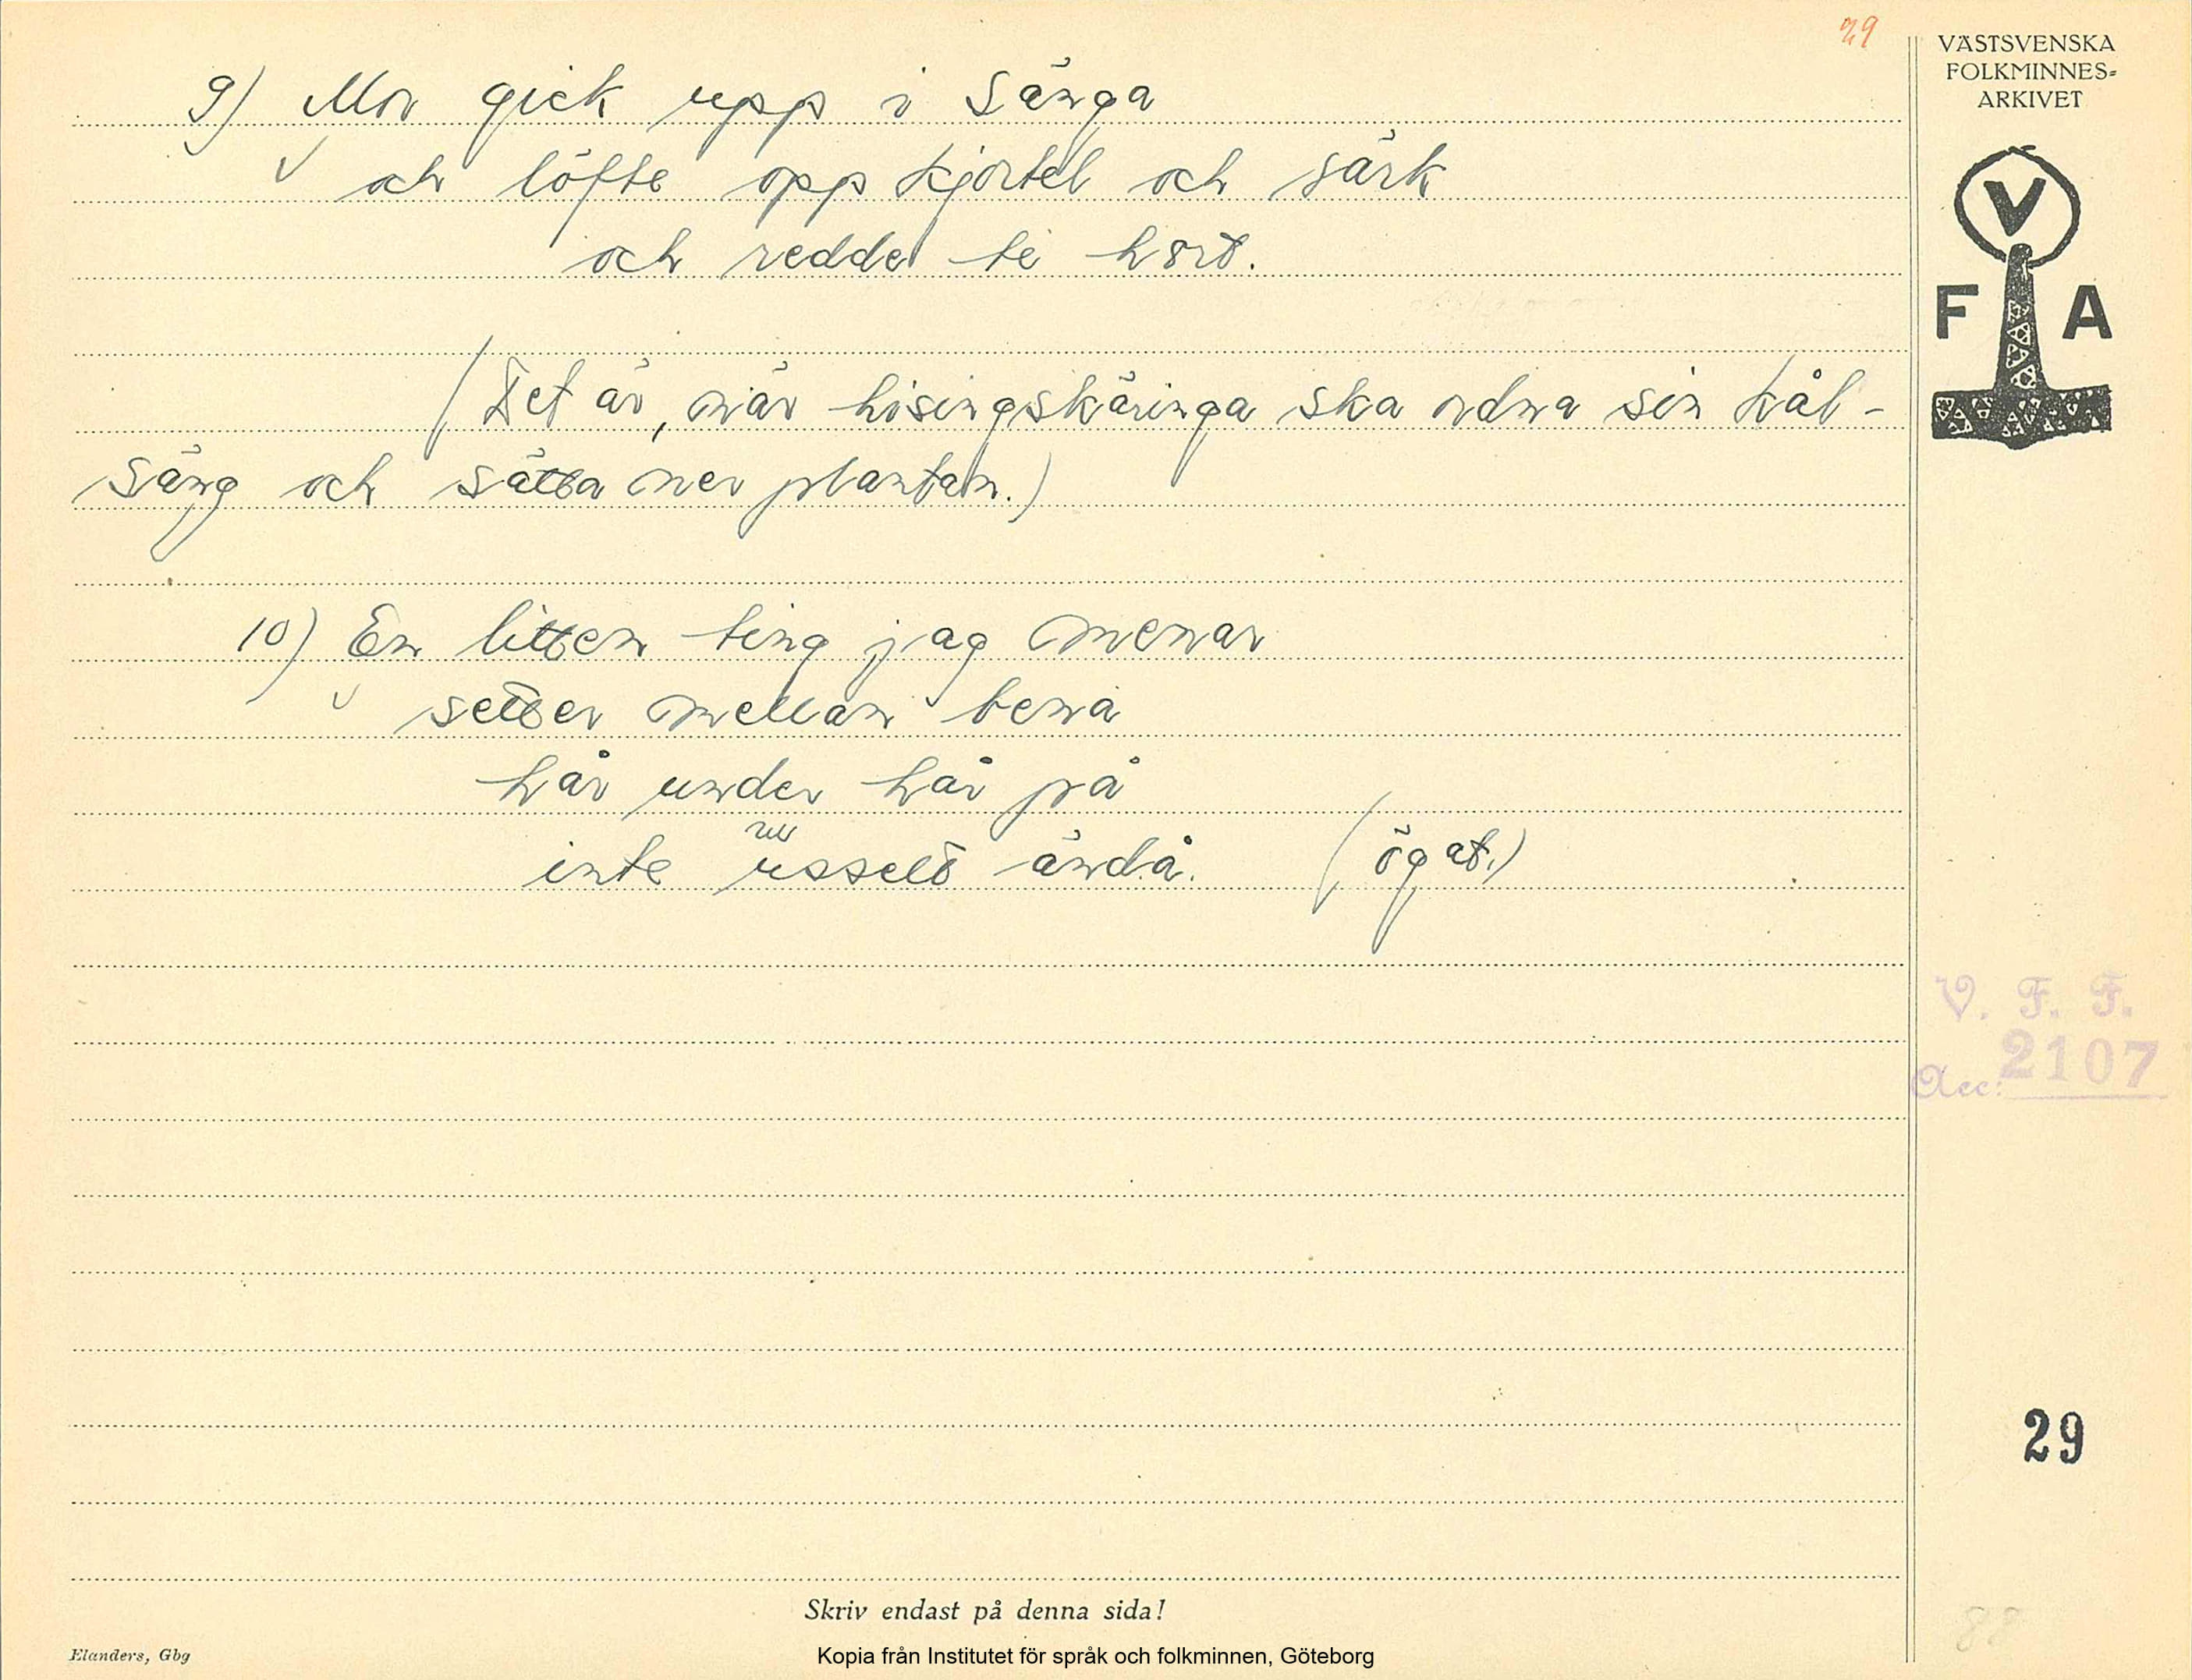 29
VÄSTSVENSKA
FOLKMINNES=
ARKIVET
V
F A
9) Mor gick upp i sänga
och löfte opp kjortel och särk
och redde te hort.
(Det är, när hisingskäringa ska ordna sin kål-
säng och sätta ner plantan.)
10) En litten ting jag menar
setter mellan bena
hår under hår på
inte usselt ändå. (ögat.)
V. F. F.
Acc: 2107
29
88
Skriv endast på denna sida!
Elanders, Gbg
Kopia från Institutet för språk och folkminnen, Göteborg